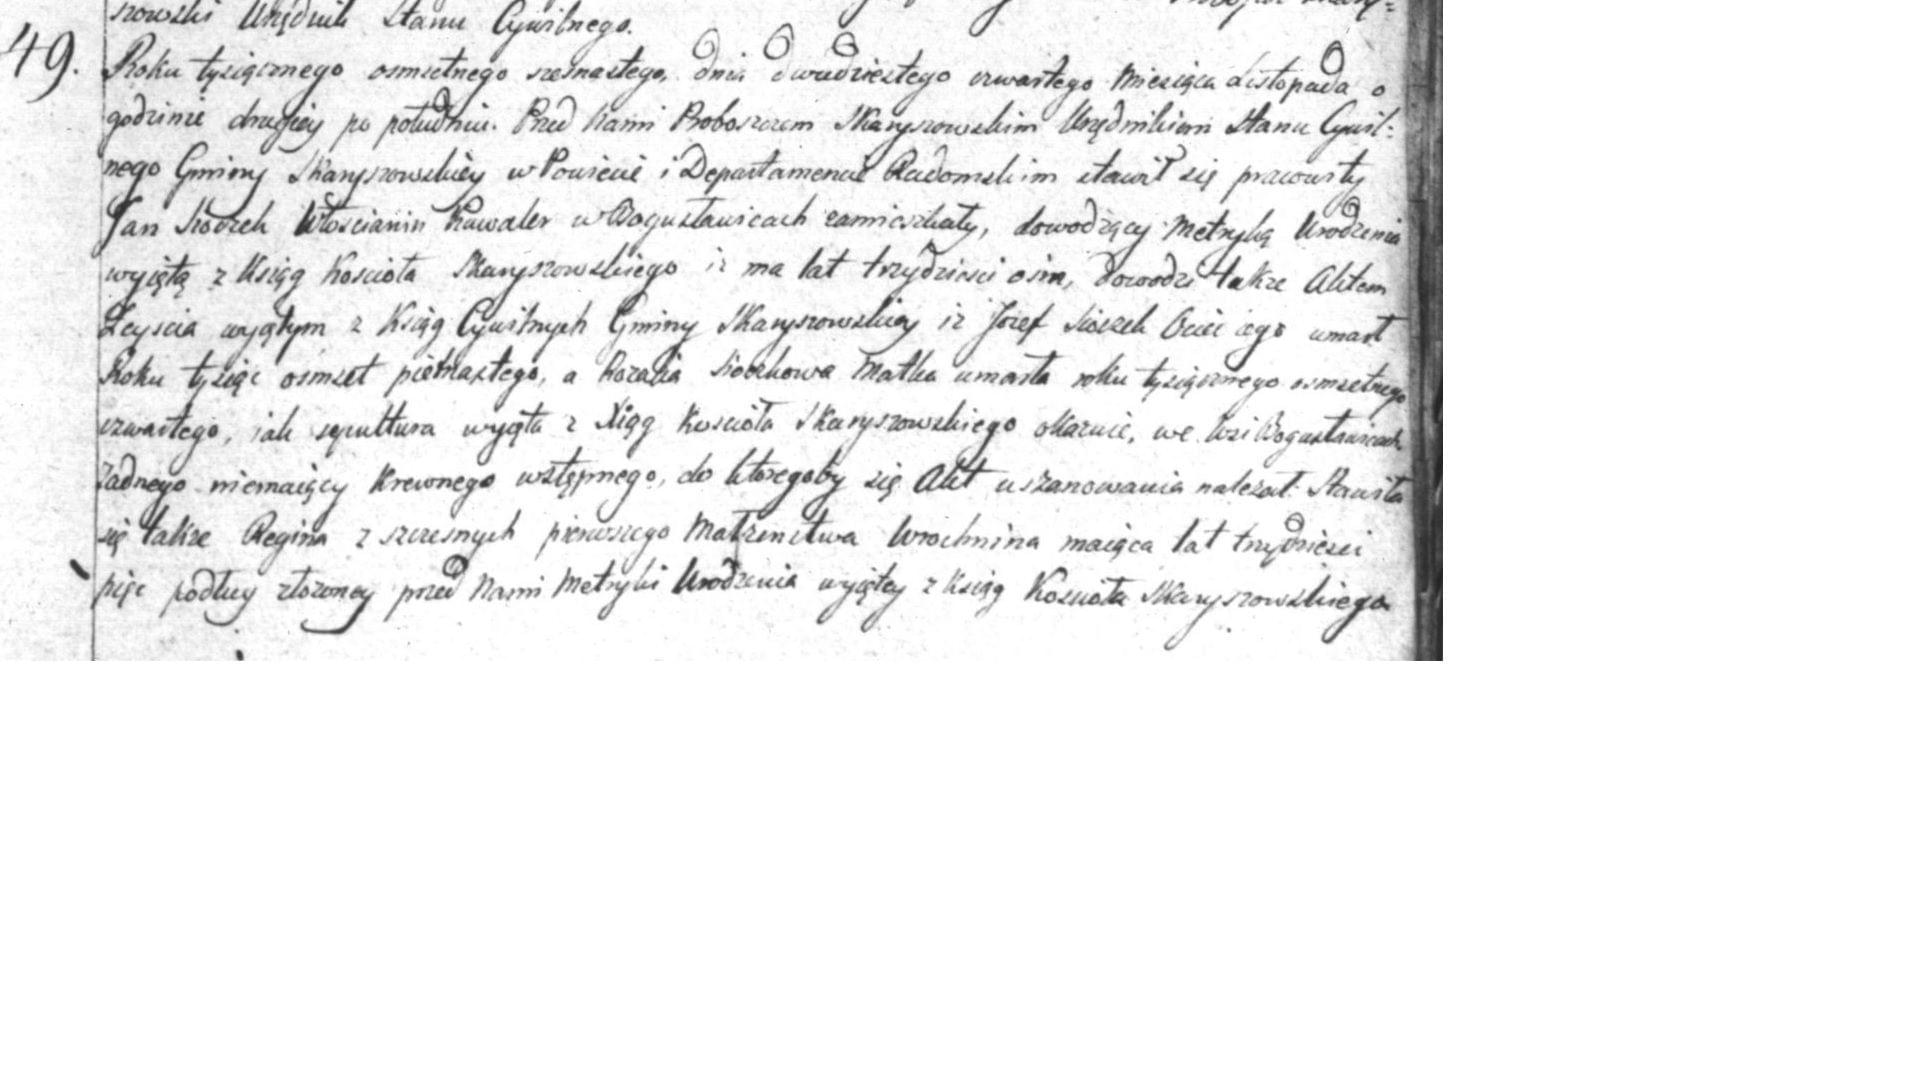 szowski Urzędnik Stanu Cywilnego.
49.
Roku tysiącznego osmsetnego szesnastego, dnia dwudziestego czwartego Miesiąca Listopada o
godzinie drugiey po południu. Przed Nami Proboszczem Skaryszowskim Urzędnikiem Stanu Cywil=
nego Gminy Skaryszowskiey w Powiecie i Departamencie Radomskim stawił się pracowity
Jan Sioczek Włoscianin Kawaler w Bogusławicach zamieszkały, dowodzący Metryką Urodzenia
wyiętą z Ksiąg Koscioła Skaryszowskiego iż ma lat trzydziesci osm, dowodzi także Aktem
Zeyscia wyiętym z Ksiąg Cywilnych Gminy Skaryszowskiey iż Jozef Sioczek Ociec iego umarł
Roku tysiąc osmset piętnastego, a Rozalia Sioczkowa Matka umarła roku tysiącznego osmsetnego
czwartego, iak sepultura wyięta z Xiąg Koscioła Skaryszowskiego okazuie, we Wsi Bogusławicach.
Żadnego niemaiący Krewnego wstępnego, do ktoregoby się Akt uszanowania należał. Stawiła
się także Regina z szczesnych pierwszego Małżenstwa Wrochnina maiąca lat trzydziesci
pięc podług złożoney przed Nami Metryki Urodzenia wyiętey z Ksiąg Koscioła Skaryszowskiego